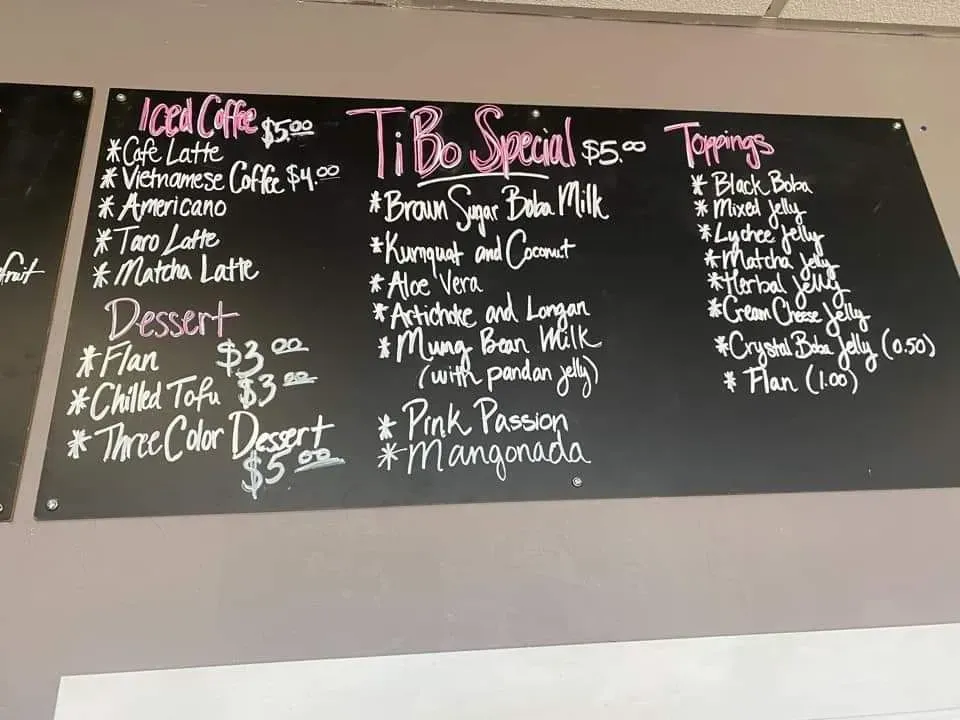 fruit
Iced Coffee $5.00
* Cafe Latte
* Vietnamese Coffee $4.00
* Americano
* Taro Latte
* Matcha Latte
Dessert
* Flan $3.00
* Chilled Tofu $3.00
* Three Color Dessert
$5.00
TiBo Special $5.00
* Brown Sugar Boba Milk
* Kumquat and Coconut
* Aloe Vera
* Artichoke and Longan
* Mung Bean Milk
(with pandan jelly)
* Pink Passion
* Mangonada
Toppings
* Black Boba
* Mixed Jelly
* Lychee Jelly
* Matcha Jelly
* Herbal Jelly
* Cream Cheese Jelly
* Crystal Boba Jelly (0.50)
* Flan (1.00)